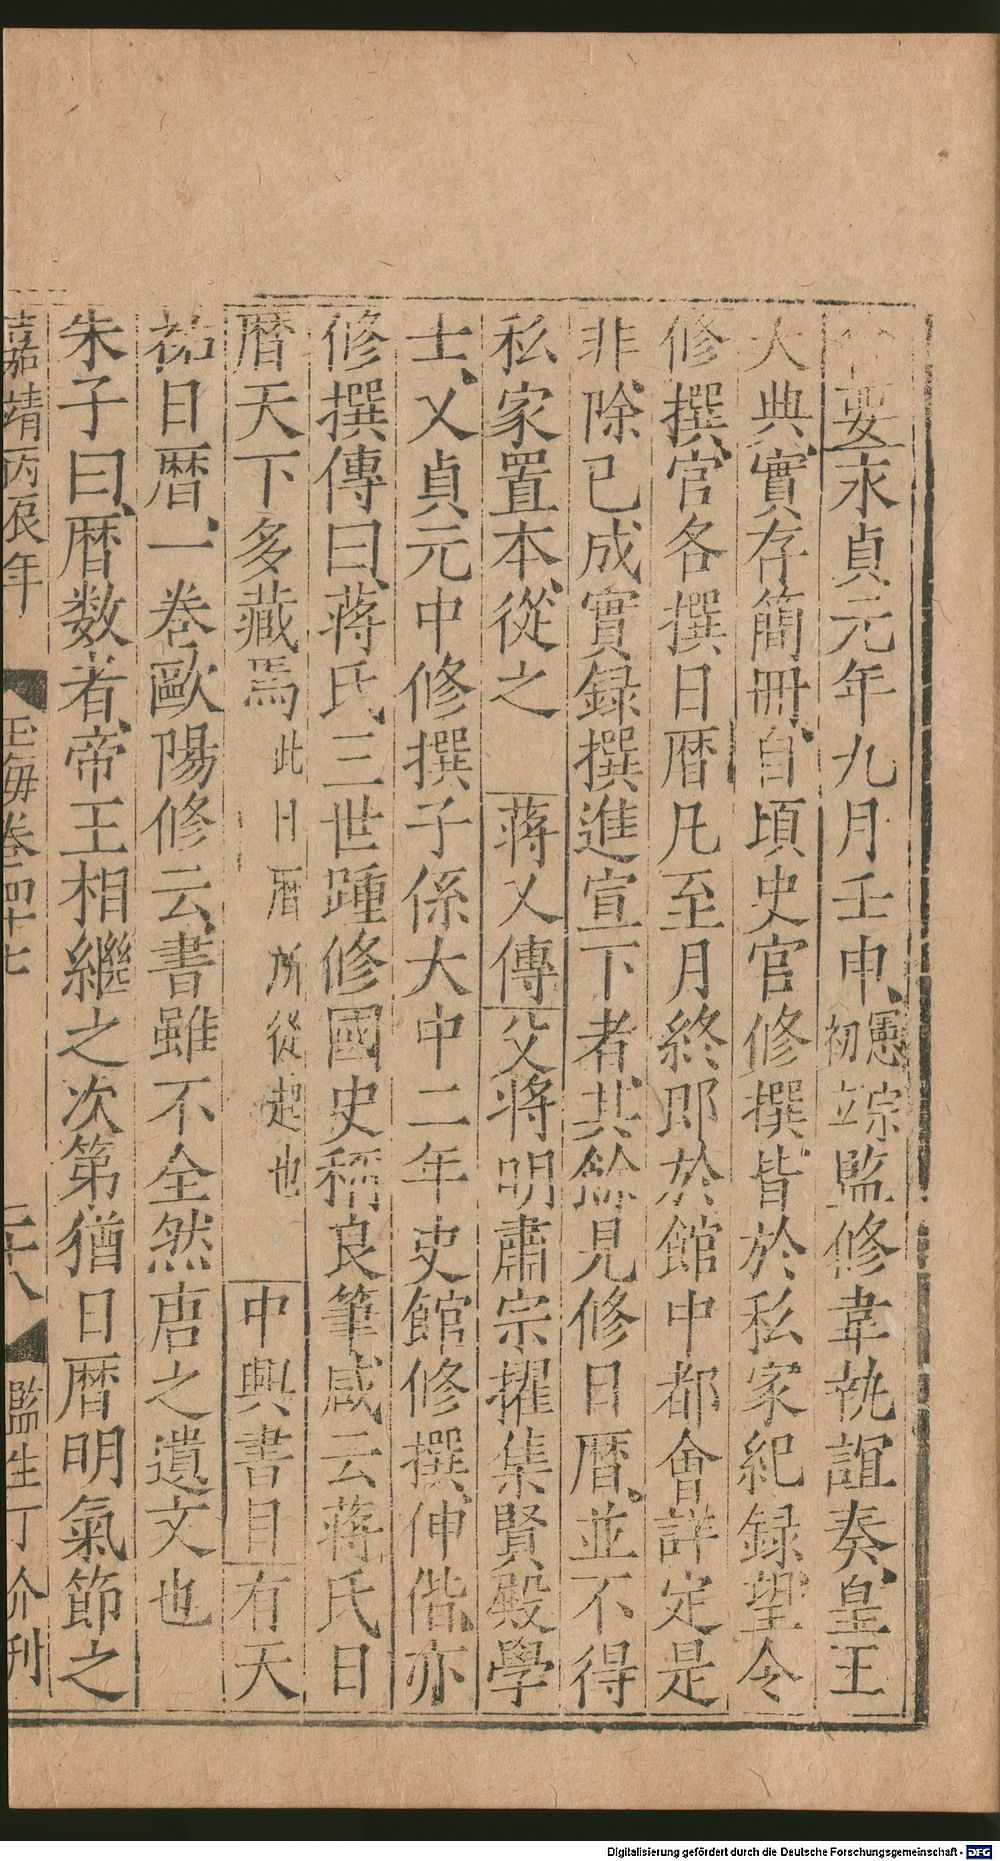 會要永貞元年九月壬申、憲宗初立監修韋執誼奏、皇王
大典、實存簡冊、自頃史官修撰、皆於私家紀録、望令
修撰、官各撰日暦凡至月終即於館中都會詳定是
非、除已成實録撰進宣下者、其餘見修日暦、並不得
私家置本、從之 蔣乂傳父將明肅宗擢集賢殿學
士、乂貞元中修撰子係大中二年史館修撰、伸偕、亦
修撰傳曰、蔣氏三世踵修國史稱良筆、咸云蔣氏日
暦天下多藏焉此日暦所從起也 中興書目有天
祐日暦、一巻歐陽修云、書雖不全然唐之遺文也
朱子曰、暦数者、帝王相繼之次第猶日暦明氣節之
嘉靖丙辰年 玉海巻四十七 二十八 監生丁介刊
Digitalisierung gefördert durch die Deutsche Forschungsgemeinschaft - DFG